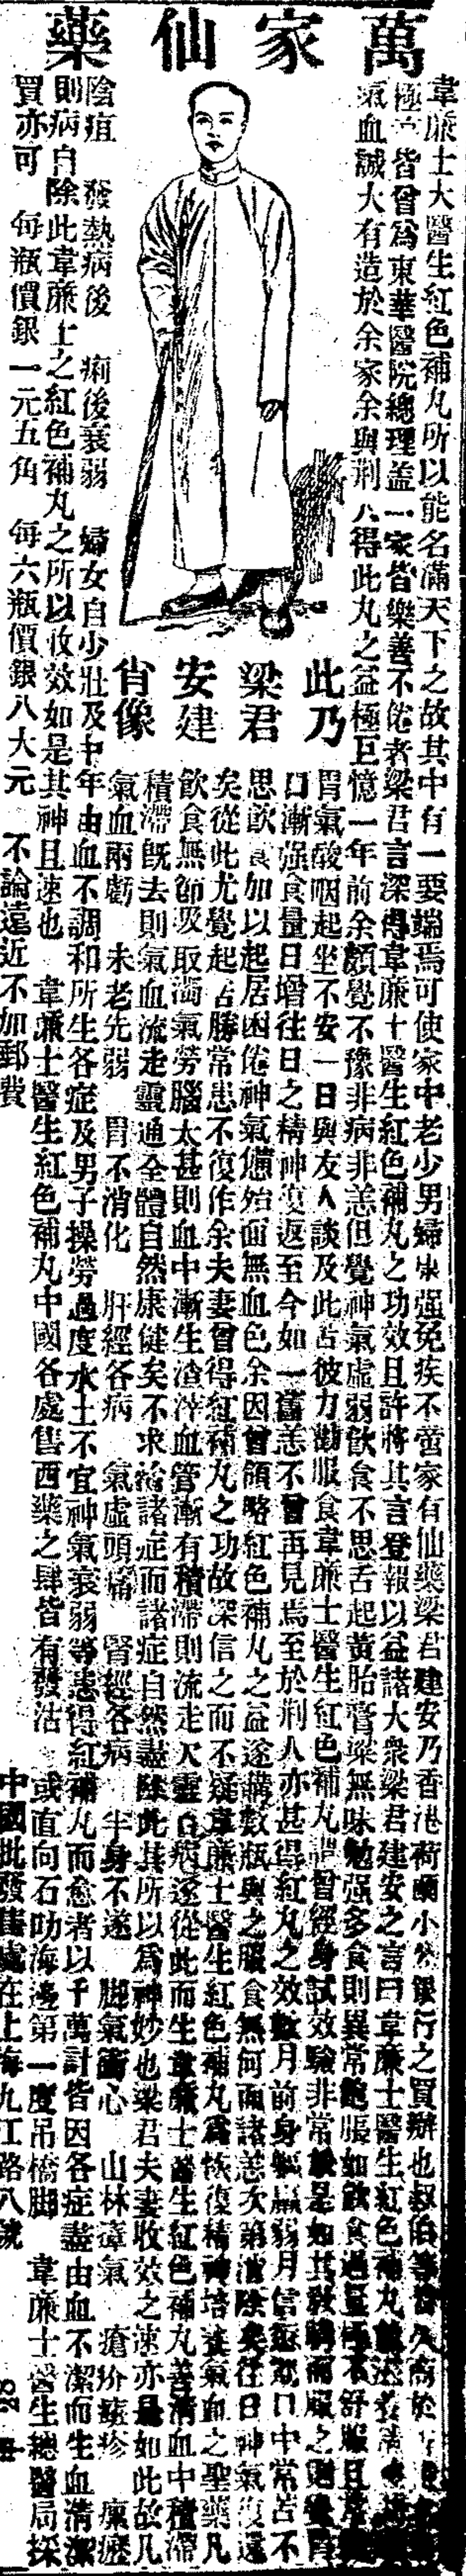 萬家仙藥
韋廉士大醫生紅色補丸所以能名滿天下之故其中有一要端焉可使家中老少男婦康强免疾不啻家有仙藥梁君建安乃香港荷蘭小公銀行之買辦也叔伯等
皆曾爲東華醫院總理盖一家皆樂善不倦者梁君言深得韋廉士醫生紅色補丸之功效且許將其言登報以益諸大衆梁君建安之言曰韋廉士醫生紅色補丸
氣血誠大有造於余家余與荆人得此丸之益極巨憶一年前余頗覺不豫非病非恙但覺神氣虛弱飲食不思舌起黃胎膏粱無味勉强多食則異常飽脹如飲食過量
此乃
梁君
建安
肖像
胃氣酸咽起坐不安一日與友人談及此苦彼力勸服食韋廉士醫生紅色補丸謂曾經身試效驗非常於是如其敎購而服之
口漸强食量日增往日之精神復返至今如一舊恙不曾再見焉至於荆人亦甚得紅丸之效數月前身軀羸弱月信口中常苦不
思飲食加以起居困倦神氣憊殆面無血色余因曾領略紅色補丸之益遂購數瓶與之服食無何而諸恙次第消除矣往日神氣復還
矣從此尤覺起居勝常患不復作余夫妻曾得紅補丸之功故深信之而不疑韋廉士醫生紅色補丸爲恢復精神培養氣血之聖藥凡
飲食無節吸取濁氣勞腦太甚則血中漸生渣滓血管漸有積滯則流走不靈百病遂從此而生韋廉士醫生紅色補丸善清血中積滯
積滯旣去則氣血流走靈通全體自然康健矣不求治諸症而諸症自然盡除此其所以爲神妙也梁君夫妻收效之速亦是如此故凡
氣血兩虧 未老先弱 胃不消化 肝經各病 氣虛頭痛 腎經各病 半身不遂 脚氣衝心 山林瘴氣 瘡疥痧疹 瘰癧
陰疽 發熱病後 痢後衰弱 婦女自少壯及中年由血不調和所生各症及男子操勞過度水土不宜神氣衰弱等患得紅補丸而愈者以千萬計皆因各症盡由血不潔而生血清潔
則病自除此韋廉士之紅色補丸之所以收效如是其神且速也 韋廉士醫生紅色補丸中國各處售西藥之肆皆有發沽 或直向石叻海邊第一度吊橋脚 韋廉士醫生總醫局採
買亦可 每瓶價銀一元五角 每六瓶價銀八大元 不論遠近不加郵費
中國批發售處在上海九江路八號